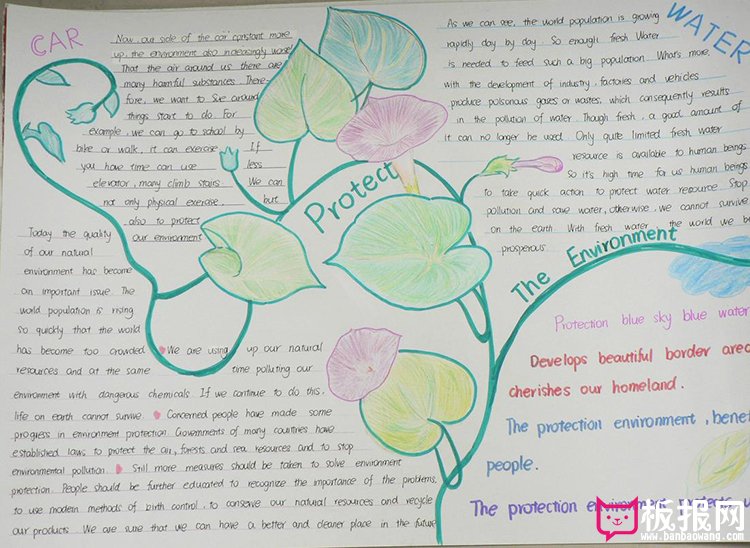 CAR
Now, our side of the car constant more
up, the environment also increasingly worse!
That the air around us there are
many harmful substances. There-
fore, we want to
around
things start to do For
example, we can go to school by
bike or walk, it can exercise. If
you have time can use less
elevator, many climb stairs. We can
not only physical exercise, but
also to protect
our environment
Today the quality
of our natural
environment has become
an important issue. The
world population is rising
so quickly that the world
has become too crowded. We are using up our natural
resources and at the same time polluting our
environment with dangerous chemicals. If we continue to do this,
life on earth cannot survive. Concerned people have made some
progress in environment protection. Governments of many countries have
established laws to protect the air, forests and sea resources and to stop
environmental pollution. Still more measures should be taken to solve environment
protection. People should be further educated to recognize the importance of the problems,
to use modern methods of birth control, to conserve our natural resources and recycle
our products. We are sure that we can have a better and cleaner place in the future
Protect
The Environment
WATER
As we can see, the world population is growing
rapidly day by day. So enough fresh Water
is needed to feed such a big population. What's more,
with the development of industry, factories and vehicles
produce poisonous gases or wastes, which consequently results
in the pollution of water. Though fresh, a good amount of
it can no longer be used. Only quite limited fresh water
resource is available to human beings
So it's high time for us human beings
to take quick action to protect water resource. Stop
pollution and save water, otherwise, we cannot survive
on the earth. With fresh water, the world we
prosperous.
Protection blue sky blue water
Develops beautiful border area
cherishes our homeland.
The protection environment,
people.
The protection environment
板报网
www.banbaowang.com